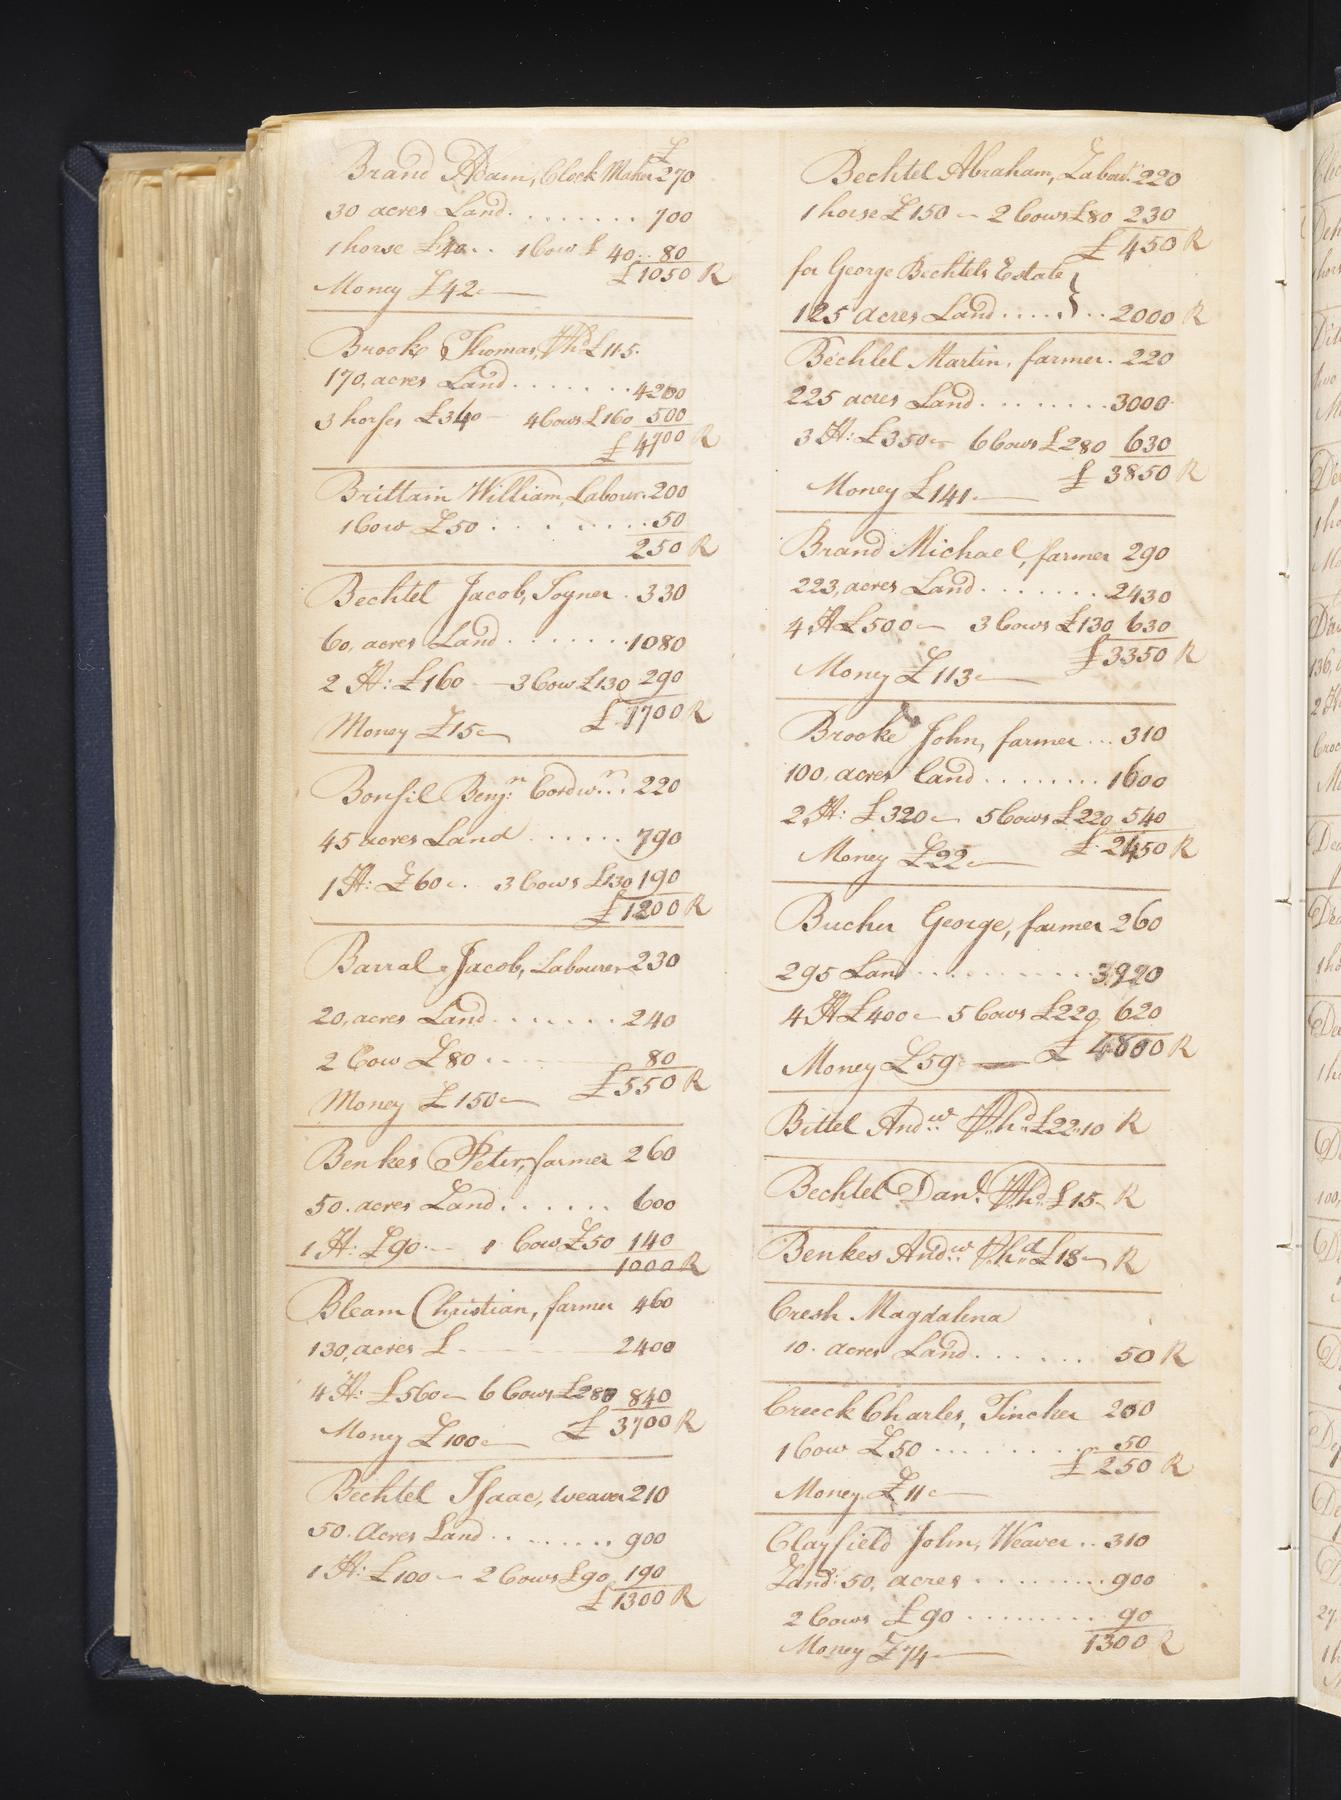 £
Brand Adam, Clock Maker 270
30 acres Land ........ 700
1 horse £40.. 1 Cow £ 40.. 80
£1050 R
Money £42 —
Brooke Thomas, Phd £115.
170, acres Land ....... 4200
3 horses £340 — 4 Cows £160 500
£ 4700 R
Brittain William, Labour. 200
1 Cow £50 ........ 50
250 R
Bechtel Jacob, Joyner . 330
60, acres Land ....... 1080
2 H: £160 — 3 Cow £130 290
£ 1700 R
Money £15 —
Bonsil Benjn. Cordwr... 220
45 acres Land ...... 790
1 H: £60 .. 3 Cows £130 190
£1200 R
Barral Jacob, Labourer 230
20, acres Land ....... 240
2 Cow £80 .... 80
£550 R
Money £150 —
Benkes Peter, farmer 260
50. acres Land ...... 600
1 H: £90. — 1 Cow £50 140
1000 R
Bleam Christian, farmer 460
130, acres L ... 2400
4 H: £560 — 6 Cows £280 840
£ 3700 R
Money £100 —
Bechtel Isaac, weaver 210
50. Acres Land ........ 900
1 H: £100 — 2 Cows £90 190
£1300 R
Bechtel Abraham, Labour. 220
1 horse £150 — 2 Cows £80 230
£450 R
for George Bechtels Estate }
125 acres Land ....... 2000 R
Bechtel Martin, farmer. 220
225 acres Land ........ 3000
3 H: £350 — 6 Cows £280 630
£ 3850 R
Money £141 —
Brand Michael, farmer 290
223, acres Land ....... 2430
4 H £500 — 3 Cows £130 630
£3350 R
Money £113 —
Brooke John, farmer ... 310
100, acres land ........ 1600
2 H: £320 — 5 Cows £220 540
£. 2450 R
Money £22 —
Bucher George, farmer 260
295 Land ........... 3920
4 H £400 — 5 Cows £220 620
£ 4800 R
Money £59 —
Bittel Andw. Phd £22.10 R
Bechtel Danl. Phd £15 — R
Benkes Andw. Phd £18 — R
Cresh Magdalena
10. acres Land ...... 50 R
Creeck Charles, Tincker 200
1 Cow £50 ......... 50
£ 250 R
Money £11 —
Clayfield John, Weaver .. 310
Land: 50, acres ......... 900
2 Cows £90 ......... 90
1300 R
Money £74 —